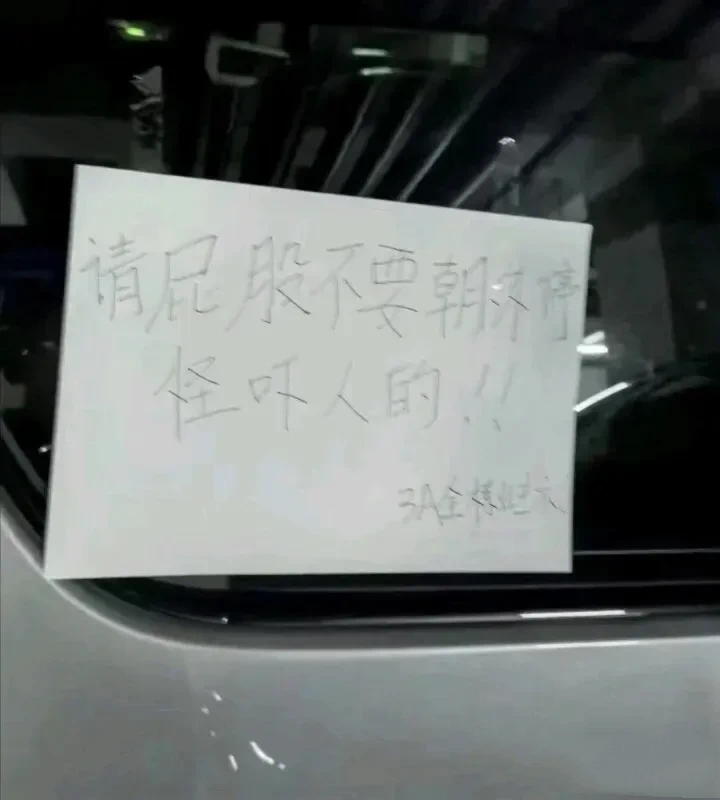 请屁股不要朝外停
怪吓人的!!
3A全楼业主